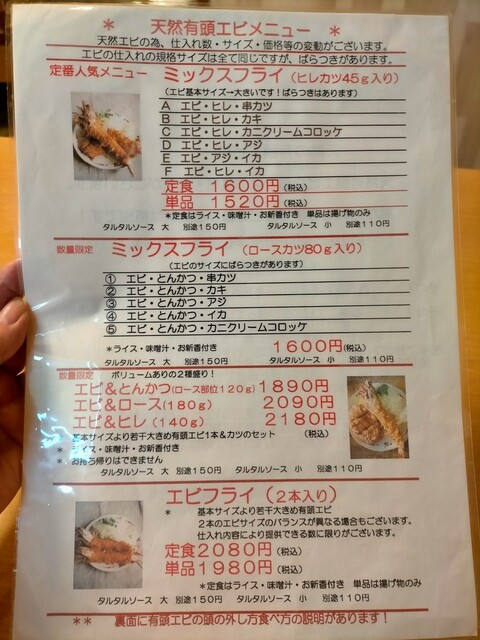 ＊ 天然有頭エビメニュー ＊
天然エビの為、仕入れ数・サイズ・価格等の変動がございます。
エビの仕入れの規格サイズは全て同じですが、ばらつきがあります。
定番人気メニュー ミックスフライ（ヒレカツ45g入り）
（エビ基本サイズ→大きいです！ばらつきはあります）
A エビ・ヒレ・串カツ
B エビ・ヒレ・カキ
C エビ・ヒレ・カニクリームコロッケ
D エビ・ヒレ・アジ
E エビ・アジ・イカ
F エビ・ヒレ・イカ
定食 1600円（税込）
単品 1520円（税込）
＊定食はライス・味噌汁・お新香付き 単品は揚げ物のみ
タルタルソース 大 別途150円 タルタルソース 小 別途110円
数量限定 ミックスフライ（ロースカツ80g入り）
（エビのサイズにばらつきがあります）
① エビ・とんかつ・串カツ
② エビ・とんかつ・カキ
③ エビ・とんかつ・アジ
④ エビ・とんかつ・イカ
⑤ エビ・とんかつ・カニクリームコロッケ
＊ライス・味噌汁・お新香付き 1600円（税込）
タルタルソース 大 別途150円 タルタルソース 小 別途110円
数量限定 ボリュームありの2種盛り！
エビ＆とんかつ（ロース部位120g）1890円
エビ＆ロース（180g） 2090円
エビ＆ヒレ（140g） 2180円
基本サイズより若干大きめ有頭エビ1本＆カツのセット （税込）
＊ ライス・味噌汁・お新香付き
＊ お持ち帰りはできません
タルタルソース 大 別途150円 タルタルソース 小 別途110円
エビフライ（2本入り）
＊ 基本サイズより若干大きめ有頭エビ
2本のエビサイズのバランスが異なる場合もございます。
仕入れ内容により提供できる数に限りがございます。
定食2080円（税込）
単品1980円（税込）
＊定食はライス・味噌汁・お新香付き 単品は揚げ物のみ
タルタルソース 大 別途150円 タルタルソース 小 別途110円
＊＊ 裏面に有頭エビの頭の外し方食べ方の説明があります！